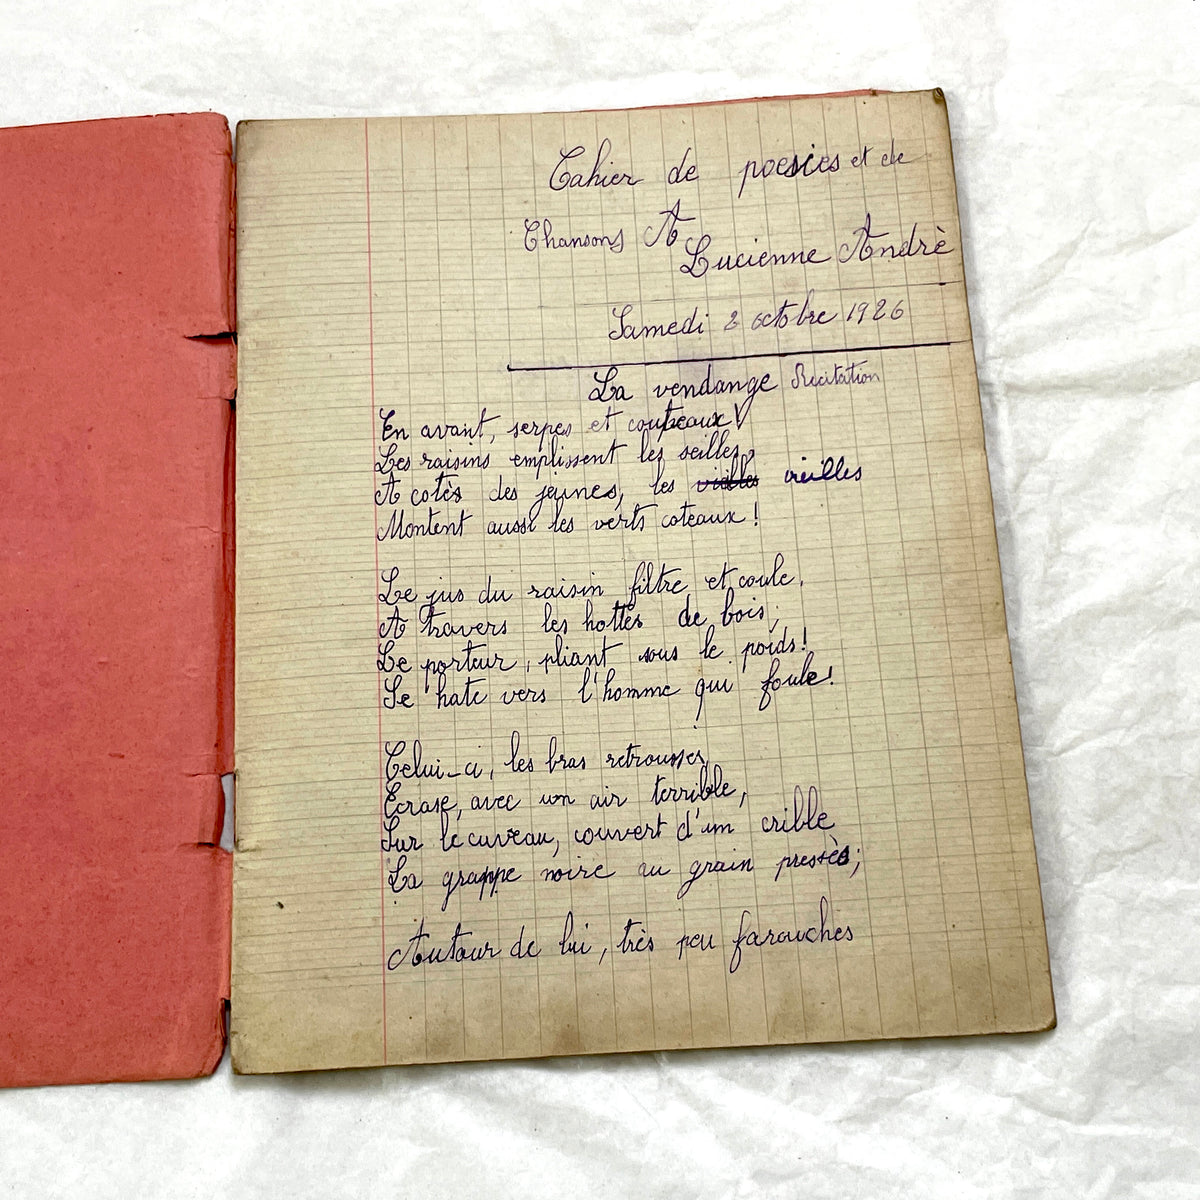 Cahier de poesies et de
Chansons A
Lucienne Andrè
Samedi 2 octobre 1926
La vendange Récitation
En avant, serpes et couteaux!
Les raisins emplissent les seilles,
A cotés des jeunes, les vieilles vieilles
Montent aussi les verts coteaux!
Le jus du raisin filtre et coule,
A travers les hottes de bois;
Le porteur, pliant sous le poids!
Se hate vers l'homme qui foule!
Celui-ci, les bras retroussés,
Ecrase, avec un air terrible,
Sur le cuveau, couvert d'un crible
La grappe noire au grain pressés;
Autour de lui, très peu farouches